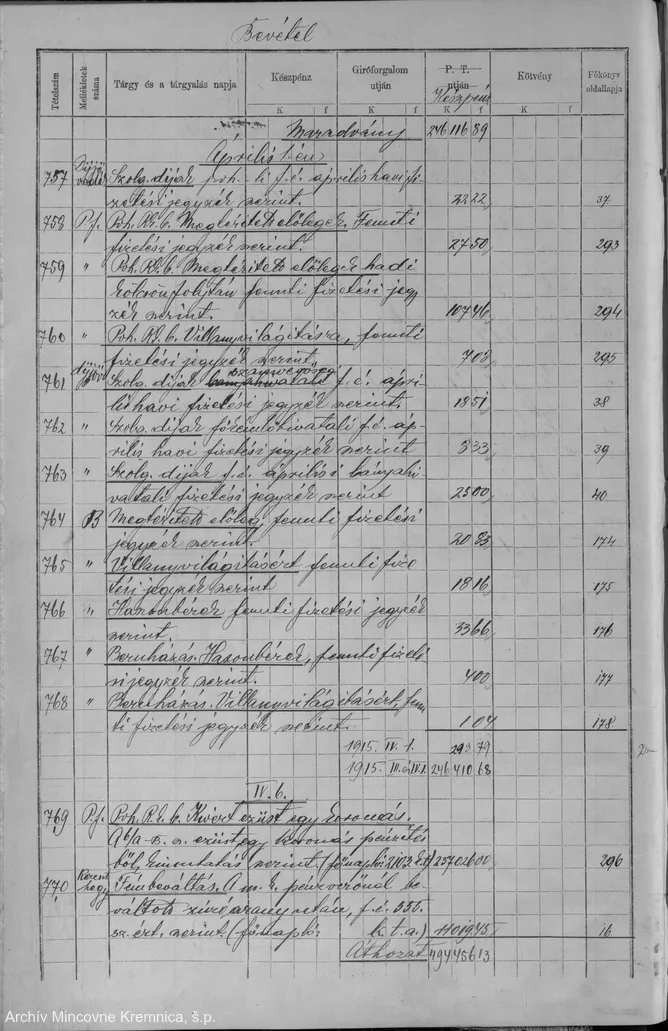 Bevétel
Tételszám
Mellékletek száma
Tárgy és a tárgyalás napja
Készpénz
Giróforgalom útján
P. T. útján
Készpénz
Kötvény
Főkönyv oldallapja
K f K f K f K f
Maradvány 246 116 89
Április 1-én
757 Szolg. díjak poh. li f. é. április havi fi-
zetési jegyzék szerint. 22 22 37
758 Pf. Poh. Rl. b. Megtérített előlegek. Fennti
fizetési jegyzék szerint. 27 50 293
759 " Poh. Rl. b. Megtérített előlegek hadi
kölcsön folytán fennti fizetési jegy-
zék szerint. 107 46 294
760 " Poh. Rl. b. Villanyvilágításra, fennti
fizetési jegyzék szerint. 7 08 295
761 Szolg. díjak f. é. ápri-
lis havi fizetési jegyzék szerint. 18 51 38
762 " Szolg. díjak főfémlőhivatali f. é. áp-
rilis havi fizetési jegyzék szerint 3 33 39
763 " Szolg. díjak f. é. áprilisi bányahi-
vatali fizetési jegyzék szerint 25 00 40
764 B Megtérített előleg, fennti fizetési
jegyzék szerint. 20 83 174
765 " Villanyvilágításért fennti fize-
tési jegyzék szerint 18 16 175
766 " Haszonbérek fennti fizetési jegyzék
szerint. 33 66 176
767 " Beruházás. Haszonbérek, fennti fizeté-
si jegyzék szerint. 4 00 177
768 " Beruházás. Villanyvilágításért, fenn-
ti fizetési jegyzék szerint. 1 04 178
1915. IV. 1. 293 79
1915. IV. 1. 246 410 68
IV. 6.
769 Pf. Poh. Rl. b. Kivert ezüst egy koronás.
ezüst egy koronás pénzek-
ből, kimutatás szerint, (főnapló 257026 00 296
770 Fémbeváltás. A m. k. pénzverőnél be-
váltott színarany után, f. é. 535.
sz. ért. szerint. (főnapló:
k. t. a.) 1101 94 5 16
Áthozat 494 456 13
Archív Mincovne Kremnica, š.p.